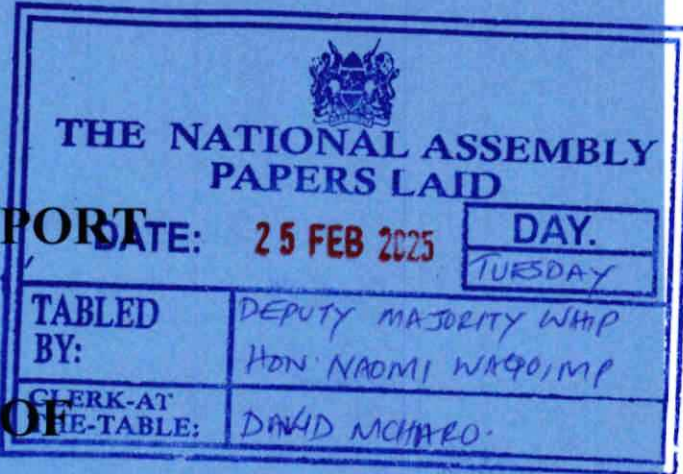 THE NATIONAL ASSEMBLY
PAPERS LAID
PORT
DATE: 25 FEB 2025 DAY.
TUESDAY
TABLED BY: DEPUTY MAJORITY WHIP
HON. NAOMI WAQO, MP
OF
CLERK-AT THE-TABLE: DAVID MCHARO.